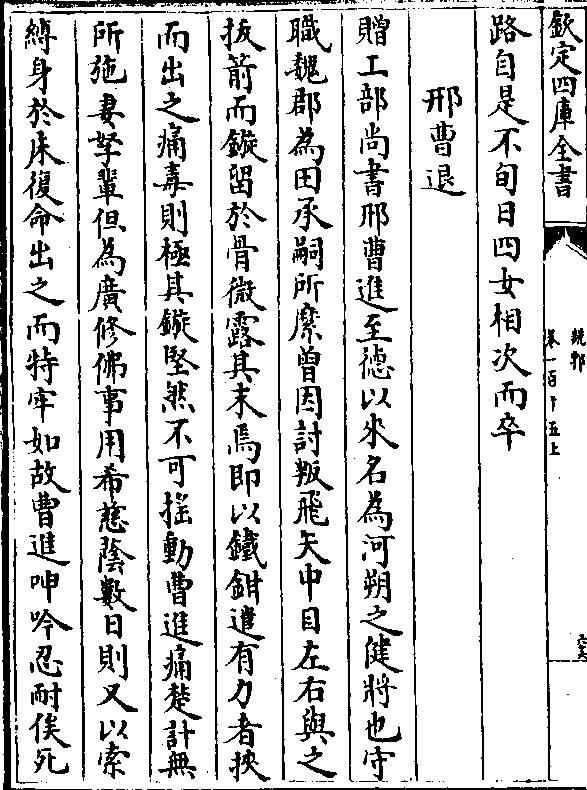 欽定四庫全書
說郛
卷一百十五上
路自是不旬日四女相次而卒
邢曹退
贈工部尚書邢曹進至德以來名為河朔之健將也守
職魏郡為田承嗣所縻曾因討叛飛矢中目左右與之
拔箭而鏃留於骨微露其末焉即以鐵鉗遣有力者挾
而出之痛毒則極其鏃堅然不可揺動曹進痛楚計無
所施妻孥輩但為廣修佛事用希慈蔭數日則又以索
縛身於牀復命出之而特牢如故曹進呻吟忍耐俟死